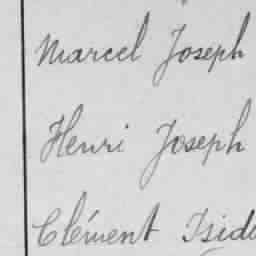 Marcel Joseph
Henri Joseph
Clément